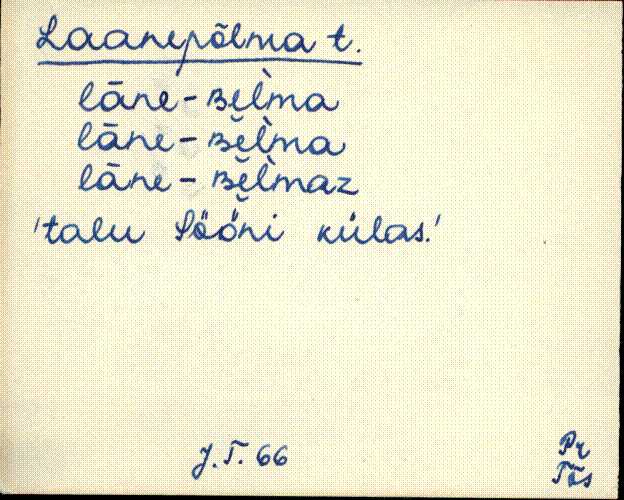 Laanepõlma t.
lāne-ʙe̮l̀ma
lāne-ʙe̮l̀ma
lāne-ʙe̮l̀maz
'talu Sööni külas.'
J.T. 66
Pr
Tõs